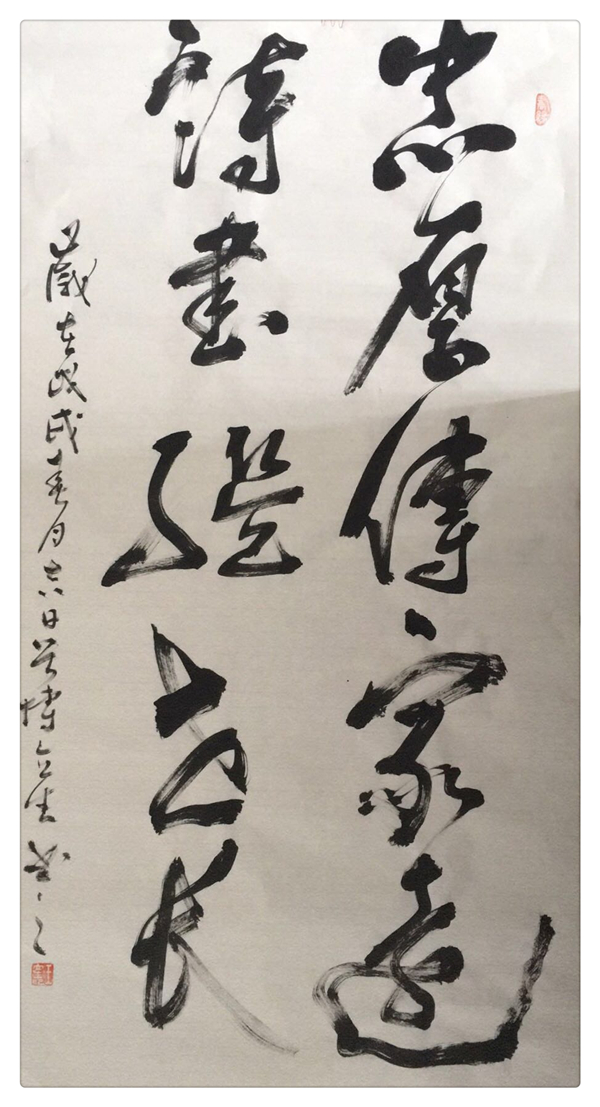 忠厚傳家遠
詩書繼世長
歲在戊戌春月 日